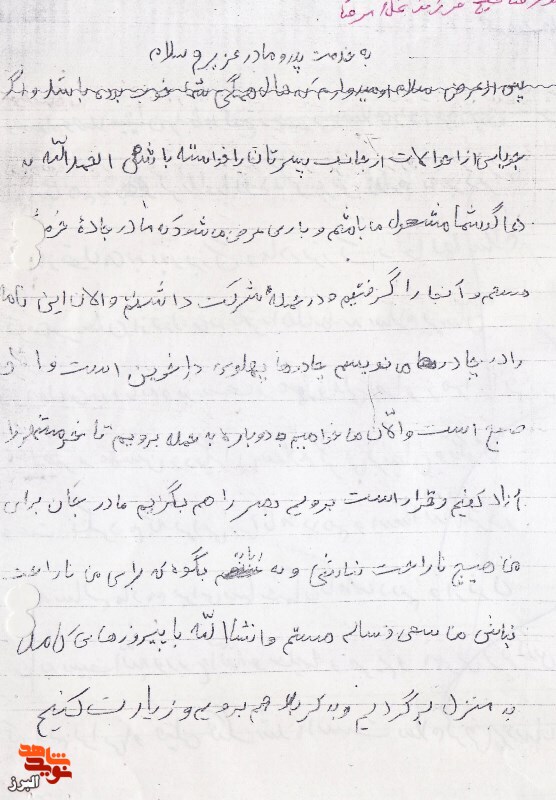 به خدمت پدر و مادر عزیزم سلام
پس از عرض سلام امیدوارم که حال همگی شما خوب بوده باشد و اگر
جویای از احوالات از جانب پسرتان را خواسته باشی الحمدالله به
دعاگوی شما مشغول می باشم و باری عرض می شود که ما در جادۀ خرم
هستیم و آنجا را گرفتیم و در حمله شرکت داشتم و الان این نامه
را در چادرها می نویسم چادرها پهلوی دارخوین است و
صبح است و الان می خواهیم دوباره به حمله برویم تا خرمشهر را
آزاد کنیم و قرار است برویم بصره را هم بگیریم مادر جان برای
من هیچ ناراحت نباشی و به بگو که برای من ناراحت
نباش ما سعی و سالم هستم و انشاالله با پیروزهای کامل
به منزل برگردیم و به کربلا هم برویم و زیارت کنیم
شاهد
نوید
البرز